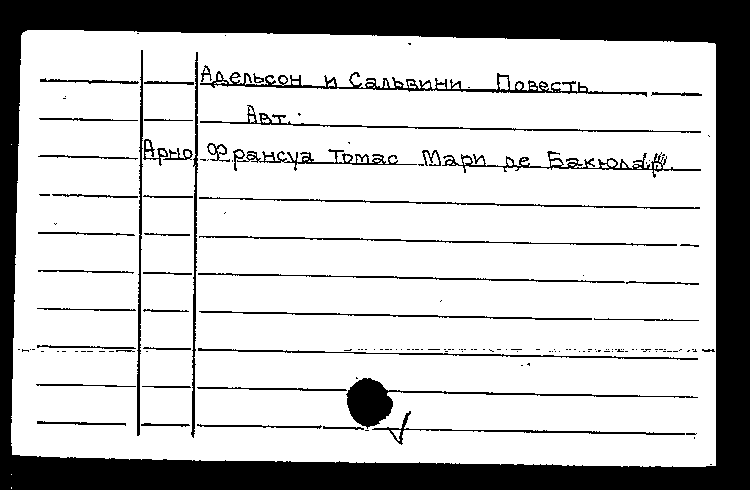 Адельсон и Сальвини. Повесть.
Авт.:
Арно, Франсуа Томас Мари де Бакюлар.